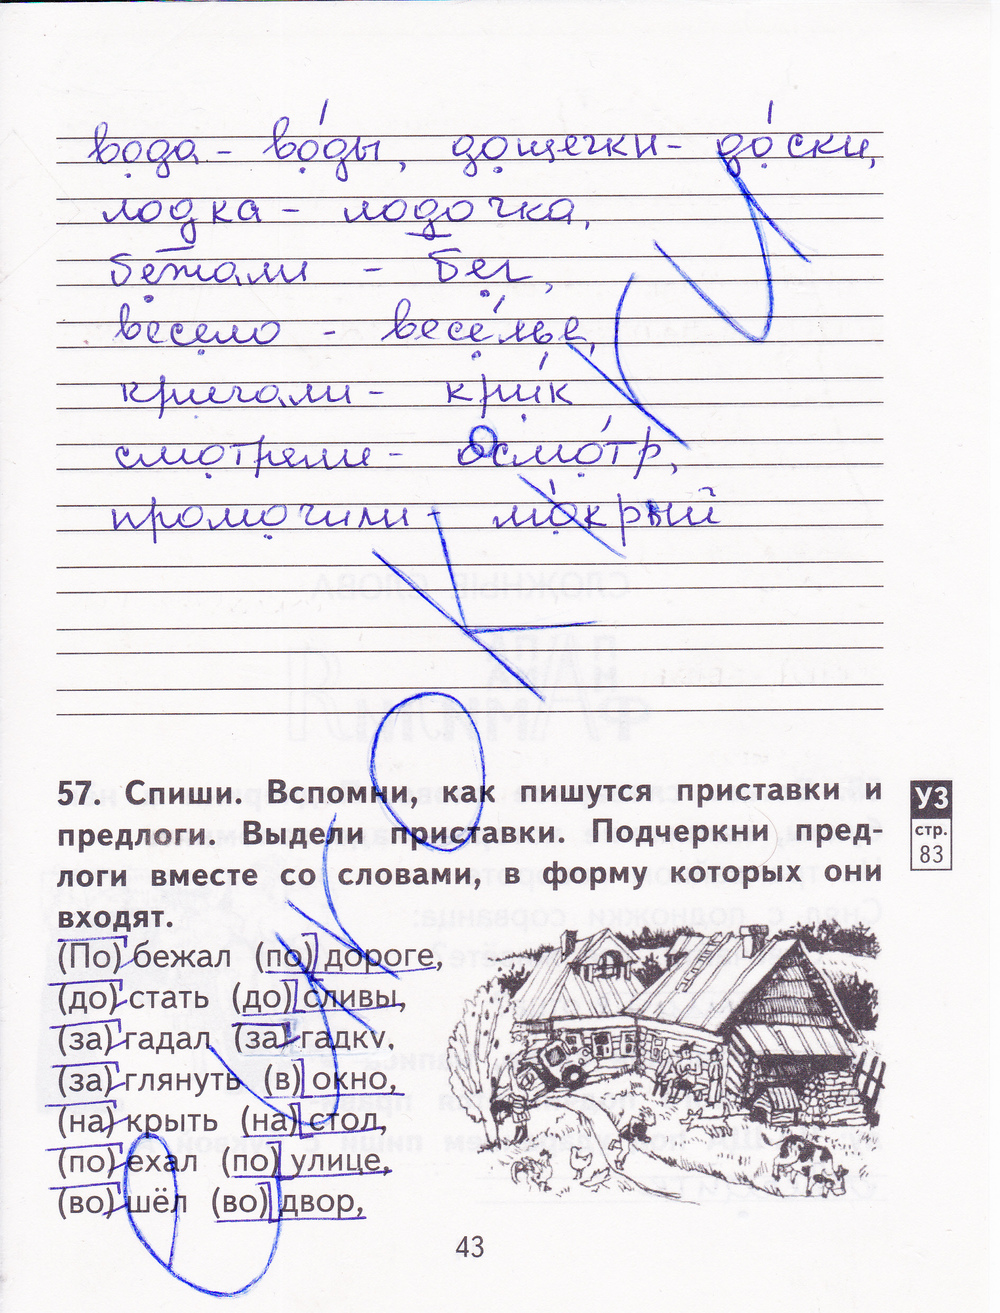 вода - во́ды, дощечки - до́ски,
лодка - лодочка,
бежали - бег,
весело - весе́лье,
кричали - кри́к
смотрели - осмо́тр,
промочили - мо́крый
57. Спиши. Вспомни, как пишутся приставки и
предлоги. Выдели приставки. Подчеркни пред-
логи вместе со словами, в форму которых они
входят.
УЗ
стр.
83
(По) бежал (по) дороге,
(до) стать (до) сливы,
(за) гадал (за) гадку,
(за) глянуть (в) окно,
(на) крыть (на) стол,
(по) ехал (по) улице,
(во) шёл (во) двор,
43